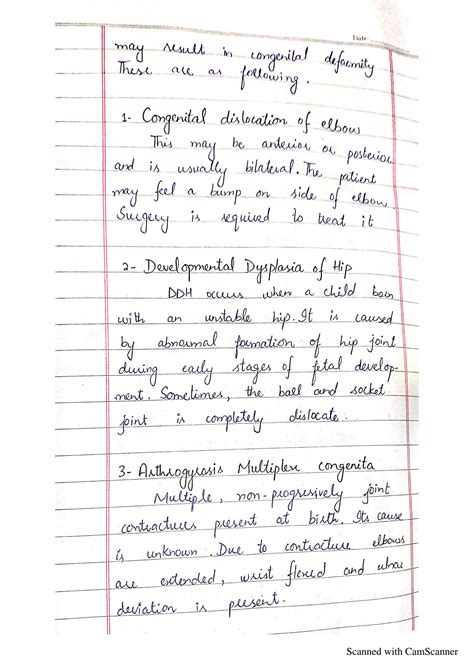 Date
may result in congenital deformity
These are as following.
1- Congenital dislocation of elbow
This may be anterior or posterior
and is usually bilateral. The patient
may feel a bump on side of elbow
Surgery is required to treat it
2- Developmental Dysplasia of Hip
DDH occurs when a child born
with an unstable hip. It is caused
by abnormal formation of hip joint
during early stages of fetal develop-
ment. Sometimes, the ball and socket
joint is completely dislocate.
3- Arthrogyrosis Multiplex congenita
Multiple, non-progresively joint
contractures present at birth. Its cause
is unknown. Due to contracture elbows
are extended, wrist flexed and ulnar
deviation is present.
Scanned with CamScanner